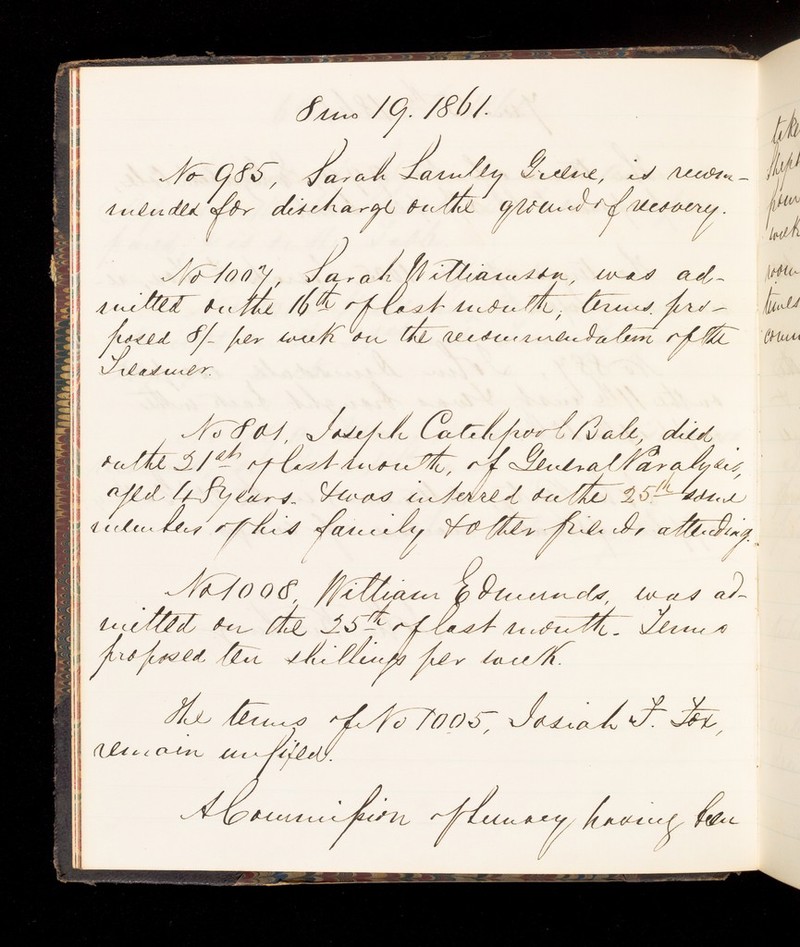 8 mo 19. 1861.
No 985, Sarah Lamley Greene, is recom-
mended for discharge on the ground of recovery.
No 1007, Sarah Williamson, was ad-
mitted on the 16th of last month, terms pro-
posed 8/- per week on the recommendation of the
Treasurer.
No 801, Joseph Catchpool Bale, died
on the 21st of last month, of General Paralysis,
aged 48 years. & was interred on the 25th some
members of his family & other friends attending.
No 1008, William Edmunds, was ad-
mitted on the 25th of last month. Terms
proposed ten shillings per week.
The terms of No 1005, Josiah F. Fox,
remain unfixed.
A Commission of Lunacy having been
week
room
times